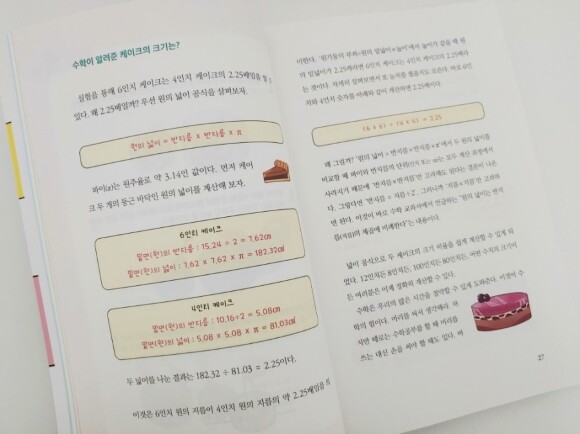 수학이 알려준 케이크의 크기는?
실험을 통해 6인치 케이크는 4인치 케이크의 2.25배임을 알 수
있다. 왜 2.25배일까? 우선 원의 넓이 공식을 살펴보자.
원의 넓이 = 반지름 x 반지름 x π
파이(π)는 원주율로 약 3.14인 값이다. 먼저 케이
크 두 개의 둥근 바닥인 원의 넓이를 계산해 보자.
6인치 케이크
밑면(원)의 반지름 : 15.24 ÷ 2 = 7.62㎝
밑면(원)의 넓이 : 7.62 x 7.62 x π = 182.32㎠
4인치 케이크
밑면(원)의 반지름 : 10.16÷2 = 5.08㎝
밑면(원)의 넓이 : 5.08 x 5.08 x π = 81.03㎠
두 넓이를 나눈 결과는 182.32 ÷ 81.03 = 2.25이다.
이것은 6인치 원의 지름이 4인치 원의 지름의 약 2.25배임을 의
미한다. '원기둥의 부피=원의 밑넓이×높이'에서 높이가 같을 때 원
의 밑넓이가 2.25배라면 6인치 케이크는 4인치 케이크의 2.25배라
는 것이다. 자세히 살펴보면서 또 눈치를 챘을지도 모른다. 바로 6인
치와 4인치 숫자를 아래와 같이 계산하면 2.25배이다.
(6 x 6) ÷ (4 x 4) = 2.25
왜 그럴까? '원의 넓이 = 반지름×반지름×π'에서 두 원의 넓이를
비교할 때 파이와 반지름의 단위(인치 또는 ㎝)는 모두 계산 과정에서
사라지기 때문에 '반지름×반지름'만 고려해도 된다는 결론이 나온
다. 그렇다면 '반지름 = 지름÷2'. 그러니까 '지름×지름'만 고려하
면 된다. 이것이 바로 수학 교과서에서 언급하는 '원의 넓이는 반지
름(지름)의 제곱에 비례한다'는 내용이다.
넓이 공식으로 두 케이크의 크기 비율을 쉽게 계산할 수 있게 되
었다. 12인치든 8인치든, 100인치든 80인치든, 어떤 수치의 크기이
든 여러분은 이제 정확히 계산할 수 있다.
수학은 우리의 많은 시간을 절약할 수 있게 도와준다. 이것이 수
학의 힘이다. 머리를 써서 생각해야 하
지만 때로는 수학공부를 할 때 머리를
쓰는 대신 손을 써야 할 때도 있다. 바
27